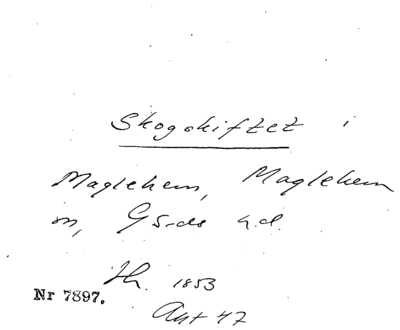 Skogskiftet i
Maglehem, Maglehem
sn, Gärds h.d.
1853
Nr 7897.
Akt 47